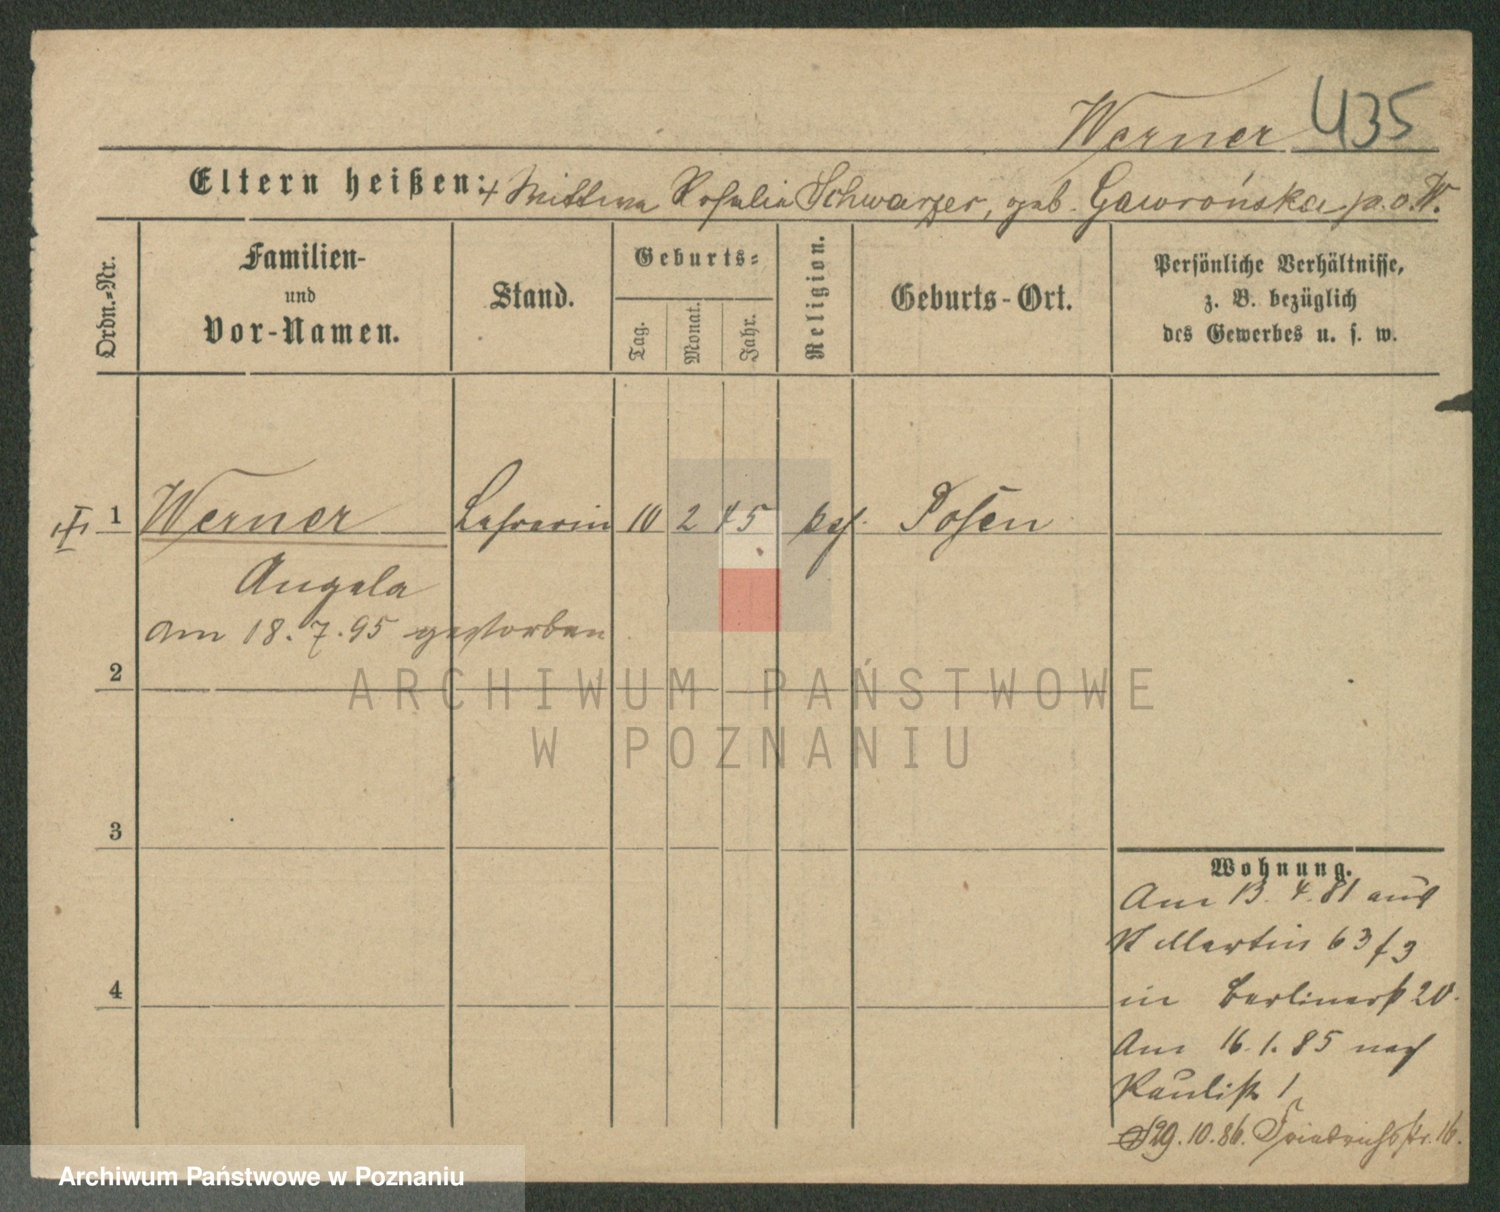 Werner 435
Eltern heißen: + Wittwe Rosalie Schwarzer, geb. Gawrońska p. o. W.
Ordn.-Nr.
Familien-
und
Vor-Namen.
Stand.
Geburts-
Tag.
Monat.
Jahr.
Religion.
Geburts-Ort.
Persönliche Verhältnisse,
z. B. bezüglich
des Gewerbes u. s. w.
1 Werner Lehrerin 10 2 45 kath. Posen
Angela
am 18.7.95 gestorben
2
ARCHIWUM PAŃSTWOWE
W POZNANIU
3
4
Wohnung.
Am 13.4.81 aus
St Martin 63 f 3
in Berlinerst 20.
Am 16.1.85 nach
Paulist 1
29.10.86. Friedrichstr. 16.
Archiwum Państwowe w Poznaniu